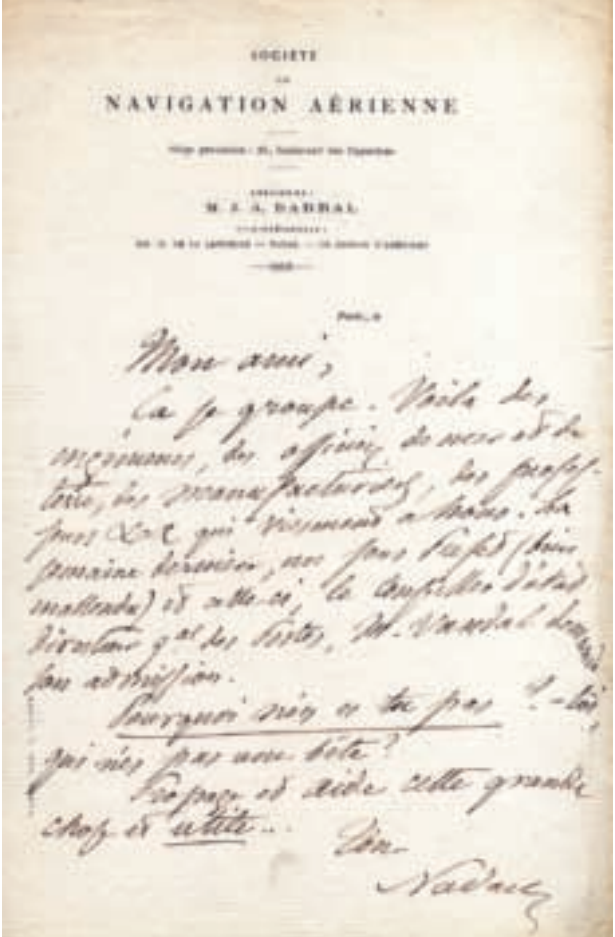 SOCIÉTÉ
DE
NAVIGATION AÉRIENNE
M. J. A. BARRAL
Paris, le
Mon ami,
Ça se groupe. Voilà des
ingénieurs, des officiers de mer et de
terre, des manufacturiers, des profes-
qui viennent à nous. La
semaine dernière, un Préfet (bien
inattendu) et celle-ci, le Conseiller d'état
directeur gal des Postes, M. Vandal demande
son admission.
Pourquoi n'en es tu pas ? - toi,
qui n'es pas une bête ?
Propage et aide cette grande
chose et utile...
Ton
Nadar